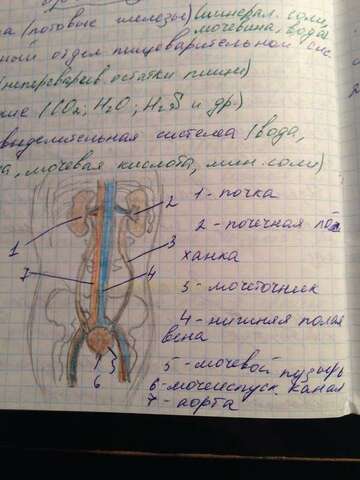 а (потовые железы) (минерал. соли,
мочевина, вода
ный отдел пищеварительной сис
(непереварив. остатки пищи)
кие (CO₂; H₂O; H₂S и др.)
выделительная система (вода,
а, мочевая кислота, мин. соли)
1 - почка
2 - почечная ло
ханка
3 - мочеточник
4 - нижняя полая
вена
5 - мочевой пузырь
6 - мочеиспуск. канал
7 - аорта
1
2
3
7
4
5
6